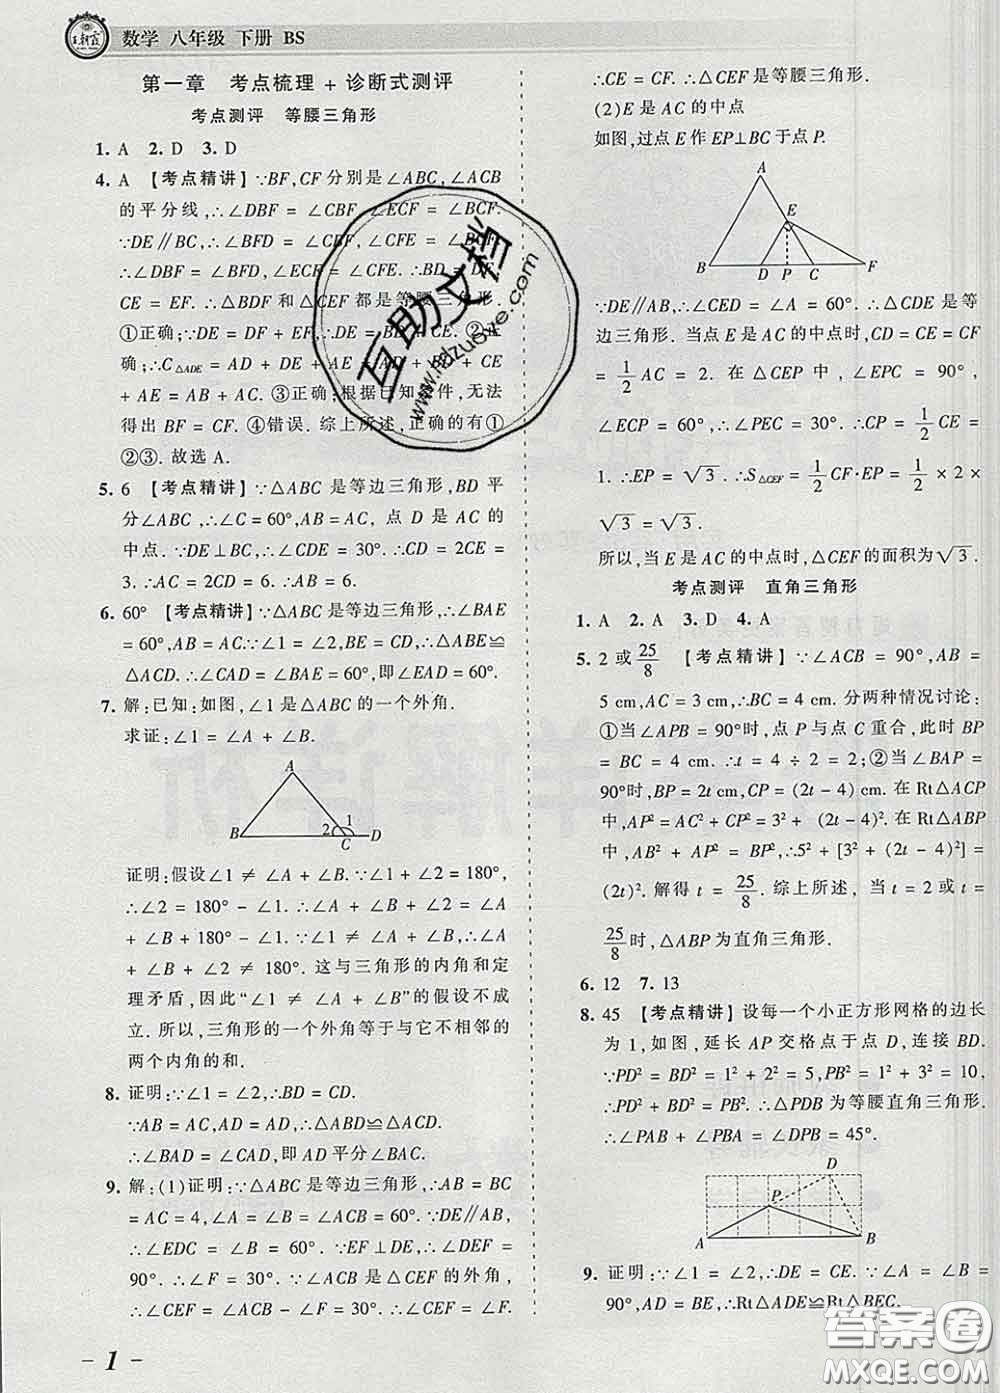 王朝霞 数学 八年级 下册 BS
第一章 考点梳理 + 诊断式测评
考点测评 等腰三角形
1. A 2. D 3. D
4. A 【考点精讲】∵BF,CF 分别是∠ABC,∠ACB
的平分线,∴∠DBF = ∠CBF,∠ECF = ∠BCF.
∵DE∥BC,∴∠BFD = ∠CBF,∠CFE = ∠BCF.
∴∠DBF = ∠BFD,∠ECF = ∠CFE. ∴BD = DF,
CE = EF. ∴△BDF 和△CEF 都是等腰三角形.
①正确;∵DE = DF + EF,∴DE = BD + CE. ②正
确;∴C△ADE = AD + DE + AE = AD + BD + CE
+ AE = AB + AC. ③正确;根据已知条件,无法
得出 BF = CF. ④错误. 综上所述,正确的有①
②③. 故选 A.
5. 6 【考点精讲】∵△ABC 是等边三角形,BD 平
分∠ABC,∴∠C = 60°,AB = AC, 点 D 是 AC 的
中点. ∵DE⊥BC,∴∠CDE = 30°. ∴CD = 2CE =
3. ∴AC = 2CD = 6. ∴AB = AC = 6.
6. 60° 【考点精讲】∵△ABC 是等边三角形,∴∠BAE
= 60°,AB = AC. ∵∠1 = ∠2,BE = CD,∴△ABE≌
△ACD. ∴∠CAD = ∠BAE = 60°,即∠EAD = 60°.
7. 解:已知:如图,∠1 是△ABC 的一个外角.
求证:∠1 = ∠A + ∠B.
A
B
2
1
C
D
证明:假设∠1 ≠ ∠A + ∠B. ∵∠1 = 180° - ∠2,
∴∠2 = 180° - ∠1. ∴∠A + ∠B + ∠2 = ∠A +
∠B + 180° - ∠1. ∵∠1 ≠ ∠A + ∠B,∴∠A +
∠B + ∠2 ≠ 180°. 这与三角形的内角和定
理矛盾,因此“∠1 ≠ ∠A + ∠B”的假设不成
立. 所以,三角形的一个外角等于与它不相邻的
两个内角的和.
8. 证明:∵∠1 = ∠2,∴BD = CD.
∵AB = AC,AD = AD,∴△ABD≌△ACD.
∴∠BAD = ∠CAD,即 AD 平分∠BAC.
9. 解:(1)证明:∵△ABC 是等边三角形,AB = BC
= AC = 4,∠A = ∠B = ∠ACB = 60°. ∵DE∥AB,
∴∠EDC = ∠B = 60°. ∵EF⊥DE,∴∠DEF =
90°. ∴∠F = 30°. ∵∠ACB 是△CEF 的外角,
∴∠CEF = ∠ACB - ∠F = 30°. ∴∠CEF = ∠F.
∴CE = CF. ∴△CEF 是等腰三角形.
(2)E 是 AC 的中点
如图,过点 E 作 EP⊥BC 于点 P.
A
E
B
D
P
C
F
∵DE∥AB,∴∠CED = ∠A = 60°. ∴△CDE 是等
边三角形. 当点 E 是 AC 的中点时,CD = CE = CF
= 1/2 AC = 2. 在 △CEP 中,∠EPC = 90°,
∠ECP = 60°,∴∠PEC = 30°. ∴CP = 1/2 CE =
1. ∴EP = √3. ∴S△CEF = 1/2 CF·EP = 1/2 × 2 ×
√3 = √3.
所以,当 E 是 AC 的中点时,△CEF 的面积为√3.
考点测评 直角三角形
1. A 2. A 3. D 4. A
5. 2 或 25/8 【考点精讲】∵∠ACB = 90°,AB =
5 cm,AC = 3 cm,∴BC = 4 cm. 分两种情况讨论:
①当∠APB = 90°时,点 P 与点 C 重合,此时 BP
= BC = 4 cm. ∴t = 4 ÷ 2 = 2;②当∠BAP =
90°时,BP = 2t cm,CP = (2t - 4) cm. 在 Rt△ACP
中,AP² = AC² + CP² = 3² + (2t - 4)². 在 Rt△ABP
中,AB² + AP² = BP²,∴5² + [3² + (2t - 4)²] =
(2t)². 解得 t = 25/8. 综上所述, 当 t = 2 或
25/8 时,△ABP 为直角三角形.
6. 12 7. 13
8. 45 【考点精讲】设每一个小正方形网格的边长
为 1,如图,延长 AP 交格点于点 D,连接 BD.
∵PD² = BD² = 1² + 2² = 5,PB² = 1² + 3² = 10,
∴PD² + BD² = PB². ∴△PDB 为等腰直角三角形.
∴∠PAB + ∠PBA = ∠DPB = 45°.
D
P
A
B
9. 证明:∵∠1 = ∠2,∴DE = CE. ∵∠A = ∠B =
90°,AD = BE,∴Rt△ADE≌Rt△BEC.
- 1 -
互助文档
www.hdzuoye.com
答案圈
MXQE.COM